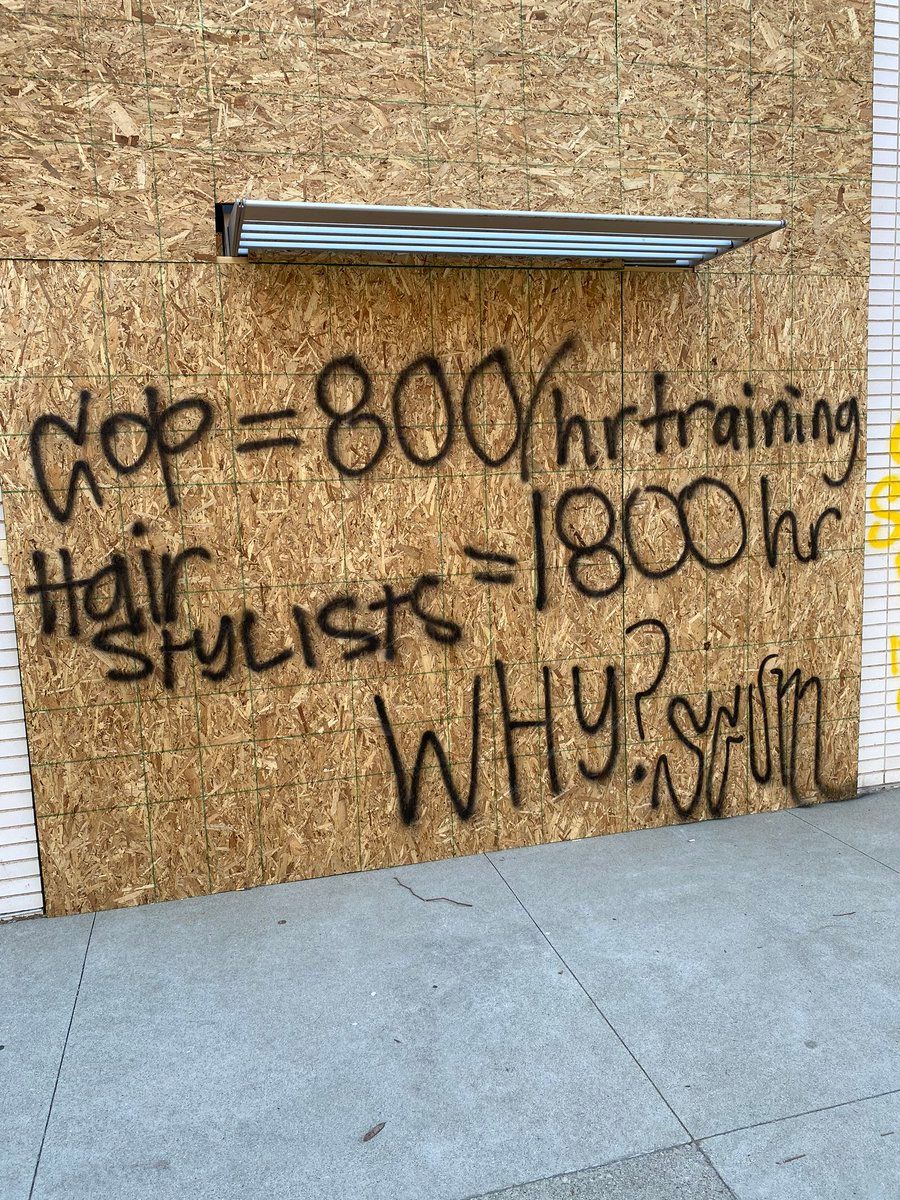 Cop = 800/hr training
Hair = 1800 hr
STYLISTS
WHY? SCUM